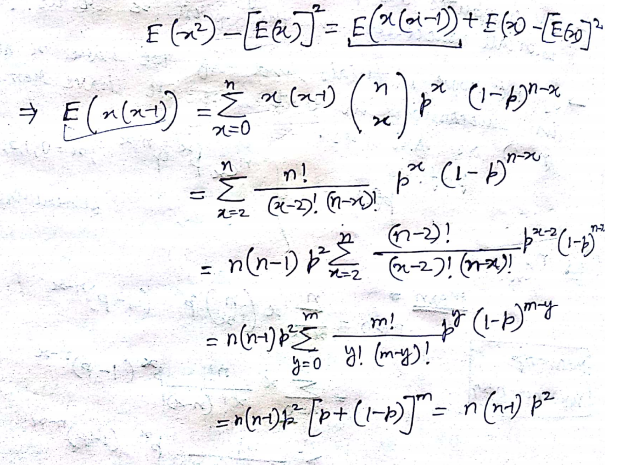 E(x²) - [E(x)]² = E(x(x-1)) + E(x) - [E(x)]²
⇒ E(x(x-1)) = \sum_{x=0}^{n} x(x-1) \binom{n}{x} p^x (1-p)^{n-x}
= \sum_{x=2}^{n} \frac{n!}{(x-2)! (n-x)!} p^x (1-p)^{n-x}
= n(n-1) p² \sum_{x=2}^{n} \frac{(n-2)!}{(x-2)! (n-x)!} p^{x-2} (1-p)^{n-x}
= n(n-1) p² \sum_{y=0}^{m} \frac{m!}{y! (m-y)!} p^y (1-p)^{m-y}
= n(n-1) p² [p + (1-p)]^m = n(n-1) p²